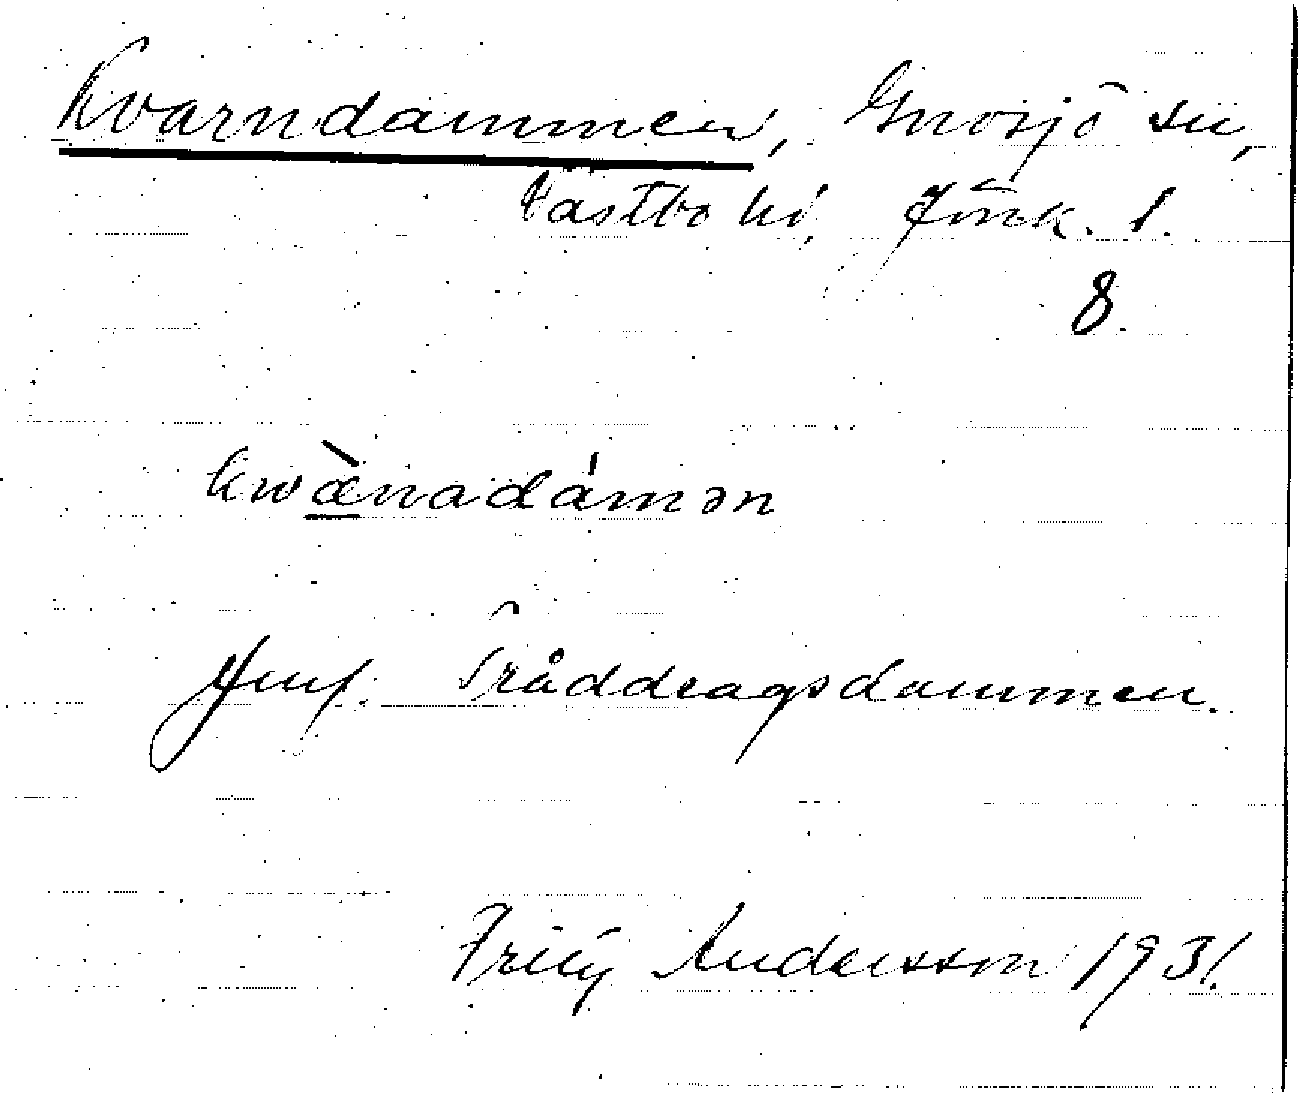 Kvarndammen, Gnosjö sn,
Västbo hd, Jönk. l.
8.
kwæ̀nadámən
Jmf. Tråddragsdammen.
Andersson 1931.